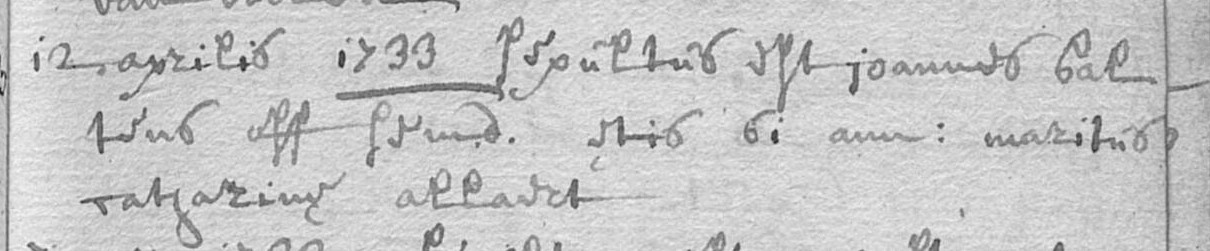 12 aprilis 1733 sepultus est joannes bal
tens ętis 61 ann: maritus
catharinę allaert